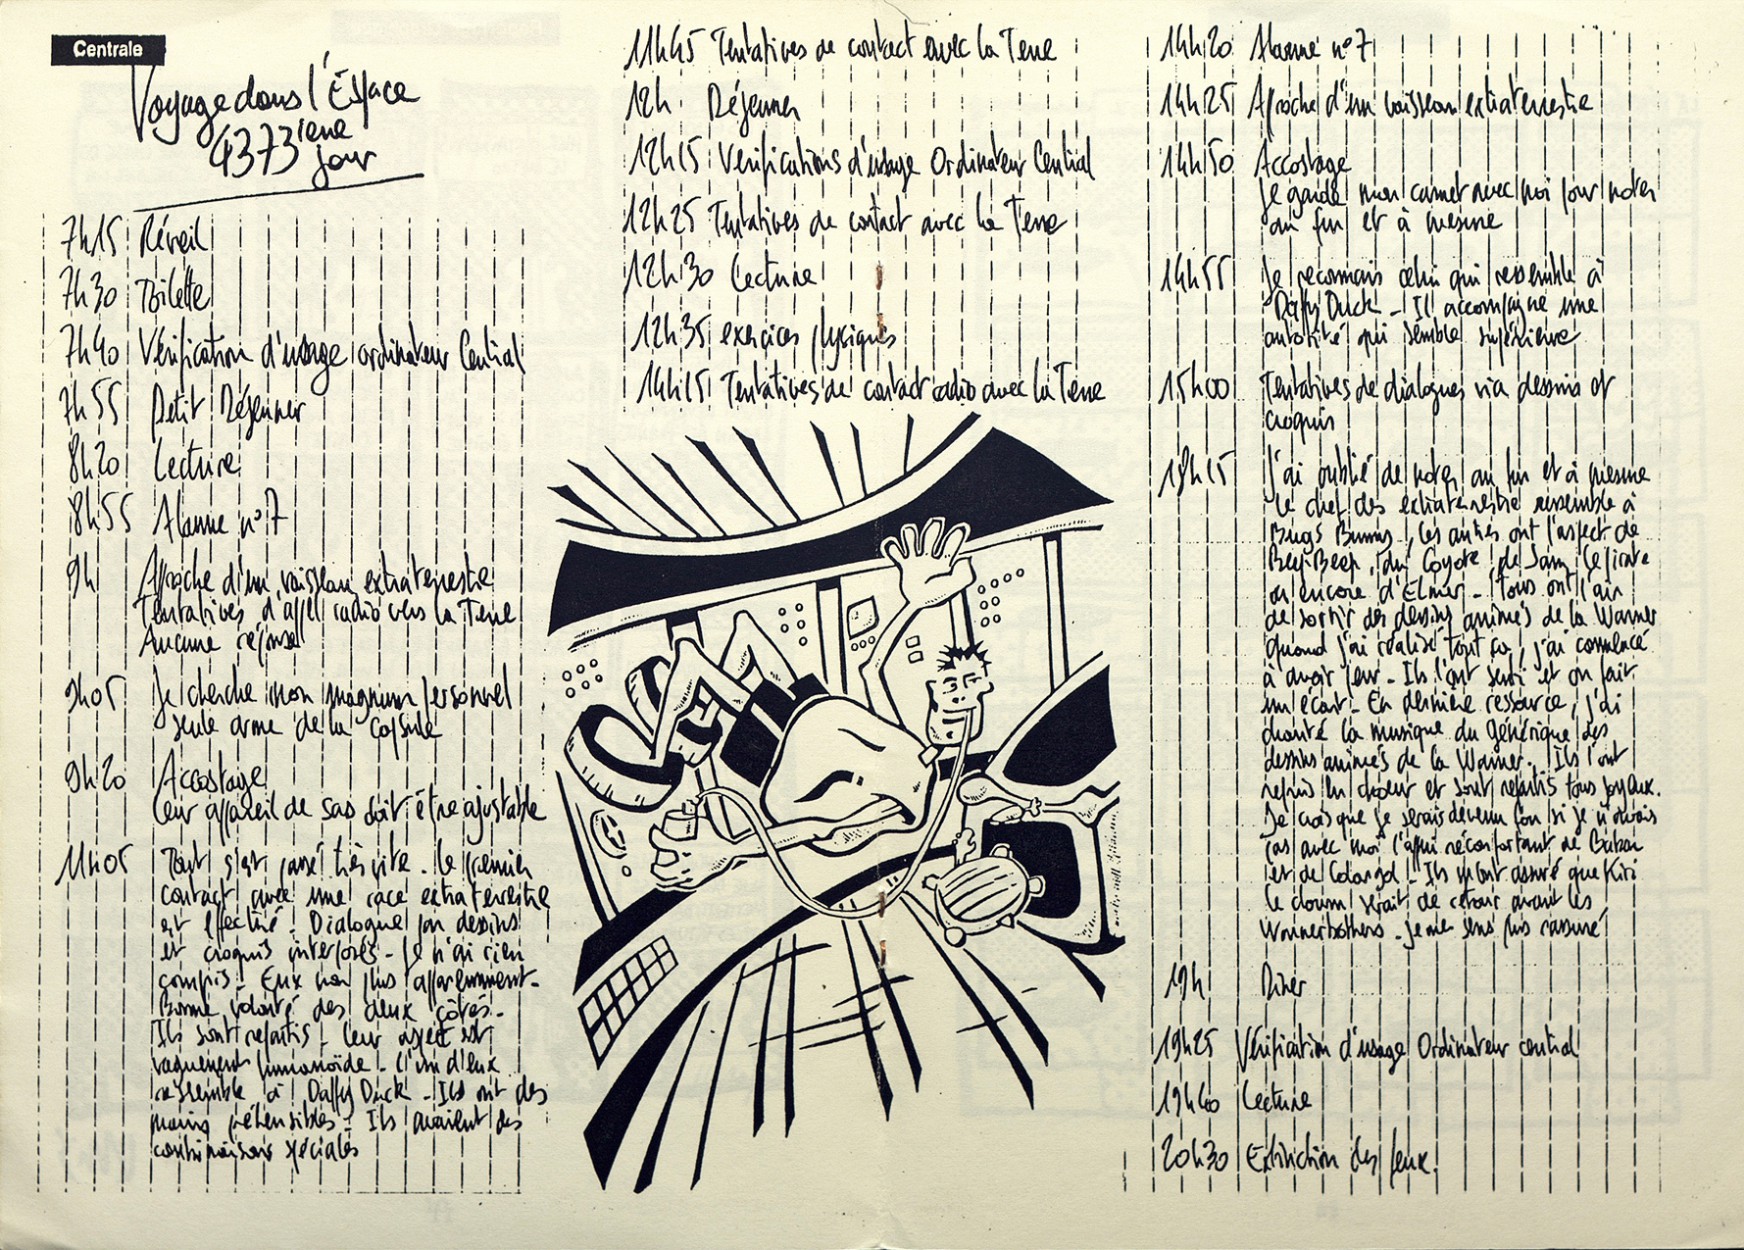 Centrale
Voyage dans l'Espace
4373ième
jour
7h15 Réveil
7h30 Toilette
7h40 Vérification d'usage ordinateur Central
7h55 Petit Déjeuner
8h20 Lecture
8h55 Alarme n°7
9h Approche d'un vaisseau extraterrestre
Tentatives d'appel radio vers la Terre
Aucune réponse
9h05 Je cherche mon magnum personnel
seule arme de la capsule
9h20 Accostage
leur appareil de sas doit être ajustable
11h05 Tout s'est passé très vite. le premier
contact avec une race extraterrestre
est effectué. Dialogue par dessins
et croquis interposés. Je n'ai rien
compris. Eux non plus apparemment.
Bonne volonté des deux côtés.
Ils sont repartis. leur aspect est
vaguement humanoïde. l'un d'eux
ressemble à Daffy Duck. Ils ont des
mains préhensibles. Ils avaient des
combinaisons spéciales
11h45 Tentatives de contact avec la Terre
12h Déjeuner
12h15 Vérifications d'usage Ordinateur Central
12h25 Tentatives de contact avec la Terre
12h30 Lecture
12h35 exercices physiques
14h15 Tentatives de contact radio avec la Terre
14h20 Alarme n°7
14h25 Approche d'un vaisseau extraterrestre
14h50 Accostage
Je garde mon carnet avec moi pour noter
au fur et à mesure
14h55 Je reconnais celui qui ressemble à
Daffy Duck. Il accompagne une
autorité qui semble supérieure
15h00 Tentatives de dialogues via dessins et
croquis
18h15 J'ai oublié de noter au fur et à mesure
le chef des extraterrestre ressemble à
Bugs Bunny, les autres ont l'aspect de
Beep-Beep, du Coyote, de Sam le pirate
ou encore d'Elmer. Tous ont l'air
de sortir des dessins animés de la Warner
quand j'ai réalisé tout ça, j'ai commencé
à avoir peur. Ils l'ont senti et on fait
un écart. En dernière ressource, j'ai
chanté la musique du générique des
dessins animés de la Warner. Ils l'ont
repris en choeur et sont repartis tous joyeux.
Je crois que je serais devenu fou si je n'avais
pas avec moi l'appui réconfortant de
et de Colargol. Ils m'ont assuré que Kiri
le clown serait de retour avant les
Warner brothers. Je me sens plus rassuré
19h Dîner
19h25 Vérification d'usage Ordinateur central
19h40 Lecture
20h30 Extinction des feux.